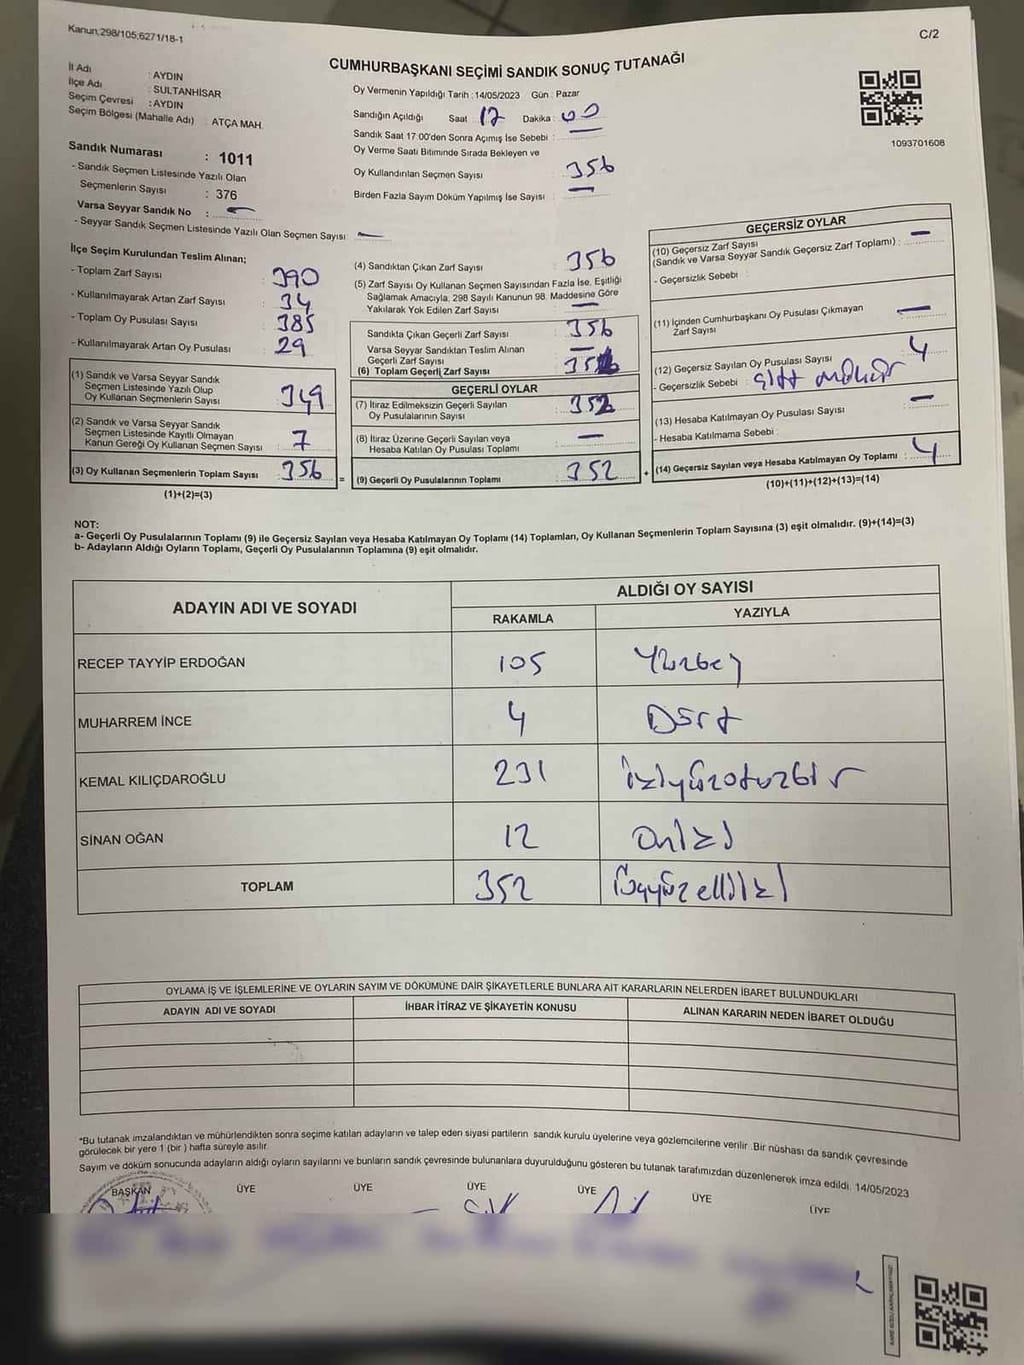 Kanun;298/105;6271/18-1
C/2
CUMHURBAŞKANI SEÇİMİ SANDIK SONUÇ TUTANAĞI
İl Adı : AYDIN
İlçe Adı : SULTANHİSAR
Seçim Çevresi : AYDIN
Seçim Bölgesi (Mahalle Adı) : ATÇA MAH.
Sandık Numarası : 1011
- Sandık Seçmen Listesinde Yazılı Olan
Seçmenlerin Sayısı : 376
Varsa Seyyar Sandık No : —
- Seyyar Sandık Seçmen Listesinde Yazılı Olan Seçmen Sayısı : —
Oy Vermenin Yapıldığı Tarih : 14/05/2023 Gün : Pazar
Sandığın Açıldığı Saat 17 Dakika : 00
Sandık Saat 17:00'den Sonra Açımış İse Sebebi : —
Oy Verme Saati Bitiminde Sırada Bekleyen ve
Oy Kullandırılan Seçmen Sayısı : 356
Birden Fazla Sayım Döküm Yapılmış İse Sayısı : —
1093701608
İlçe Seçim Kurulundan Teslim Alınan;
- Toplam Zarf Sayısı : 390
- Kullanılmayarak Artan Zarf Sayısı : 34
- Toplam Oy Pusulası Sayısı : 385
- Kullanılmayarak Artan Oy Pusulası : 29
(1) Sandık ve Varsa Seyyar Sandık
Seçmen Listesinde Yazılı Olup
Oy Kullanan Seçmenlerin Sayısı : 349
(2) Sandık ve Varsa Seyyar Sandık
Seçmen Listesinde Kayıtlı Olmayan
Kanun Gereği Oy Kullanan Seçmen Sayısı : 7
(3) Oy Kullanan Seçmenlerin Toplam Sayısı : 356
(1)+(2)=(3)
=
(4) Sandıktan Çıkan Zarf Sayısı : 356
(5) Zarf Sayısı Oy Kullanan Seçmen Sayısından Fazla İse, Eşitliği
Sağlamak Amacıyla, 298 Sayılı Kanunun 98. Maddesine Göre
Yakılarak Yok Edilen Zarf Sayısı : —
Sandıkta Çıkan Geçerli Zarf Sayısı : 356
Varsa Seyyar Sandıktan Teslim Alınan
Geçerli Zarf Sayısı : —
(6) Toplam Geçerli Zarf Sayısı :
GEÇERLİ OYLAR
(7) İtiraz Edilmeksizin Geçerli Sayılan
Oy Pusulalarının Sayısı : 352
(8) İtiraz Üzerine Geçerli Sayılan veya
Hesaba Katılan Oy Pusulası Toplamı : —
(9) Geçerli Oy Pusulalarının Toplamı : 352
+
GEÇERSİZ OYLAR
(10) Geçersiz Zarf Sayısı
(Sandık ve Varsa Seyyar Sandık Geçersiz Zarf Toplamı) : —
- Geçersizlik Sebebi :
(11) İçinden Cumhurbaşkanı Oy Pusulası Çıkmayan
Zarf Sayısı : —
(12) Geçersiz Sayılan Oy Pusulası Sayısı : 4
- Geçersizlik Sebebi : çift mühür
(13) Hesaba Katılmayan Oy Pusulası Sayısı : —
- Hesaba Katılmama Sebebi :
(14) Geçersiz Sayılan veya Hesaba Katılmayan Oy Toplamı : 4
(10)+(11)+(12)+(13)=(14)
NOT:
a- Geçerli Oy Pusulalarının Toplamı (9) ile Geçersiz Sayılan veya Hesaba Katılmayan Oy Toplamı (14) Toplamları, Oy Kullanan Seçmenlerin Toplam Sayısına (3) eşit olmalıdır. (9)+(14)=(3)
b- Adayların Aldığı Oyların Toplamı, Geçerli Oy Pusulalarının Toplamına (9) eşit olmalıdır.
ADAYIN ADI VE SOYADI
ALDIĞI OY SAYISI
RAKAMLA YAZIYLA
RECEP TAYYİP ERDOĞAN 105 Yüzbeş
MUHARREM İNCE 4 Dört
KEMAL KILIÇDAROĞLU 231 İkiyüzotuzbir
SİNAN OĞAN 12 Oniki
TOPLAM 352 Üçyüzelliiki
OYLAMA İŞ VE İŞLEMLERİNE VE OYLARIN SAYIM VE DÖKÜMÜNE DAİR ŞİKAYETLERLE BUNLARA AİT KARARLARIN NELERDEN İBARET BULUNDUKLARI
ADAYIN ADI VE SOYADI İHBAR İTİRAZ VE ŞİKAYETİN KONUSU ALINAN KARARIN NEDEN İBARET OLDUĞU
*Bu tutanak imzalandıktan ve mühürlendikten sonra seçime katılan adayların ve talep eden siyasi partilerin sandık kurulu üyelerine veya gözlemcilerine verilir. Bir nüshası da sandık çevresinde
görülecek bir yere 1 (bir) hafta süreyle asılır.
Sayım ve döküm sonucunda adayların aldığı oyların sayılarını ve bunların sandık çevresinde bulunanlara duyurulduğunu gösteren bu tutanak tarafımızdan düzenlenerek imza edildi. 14/05/2023
BAŞKAN ÜYE ÜYE ÜYE ÜYE ÜYE ÜYE